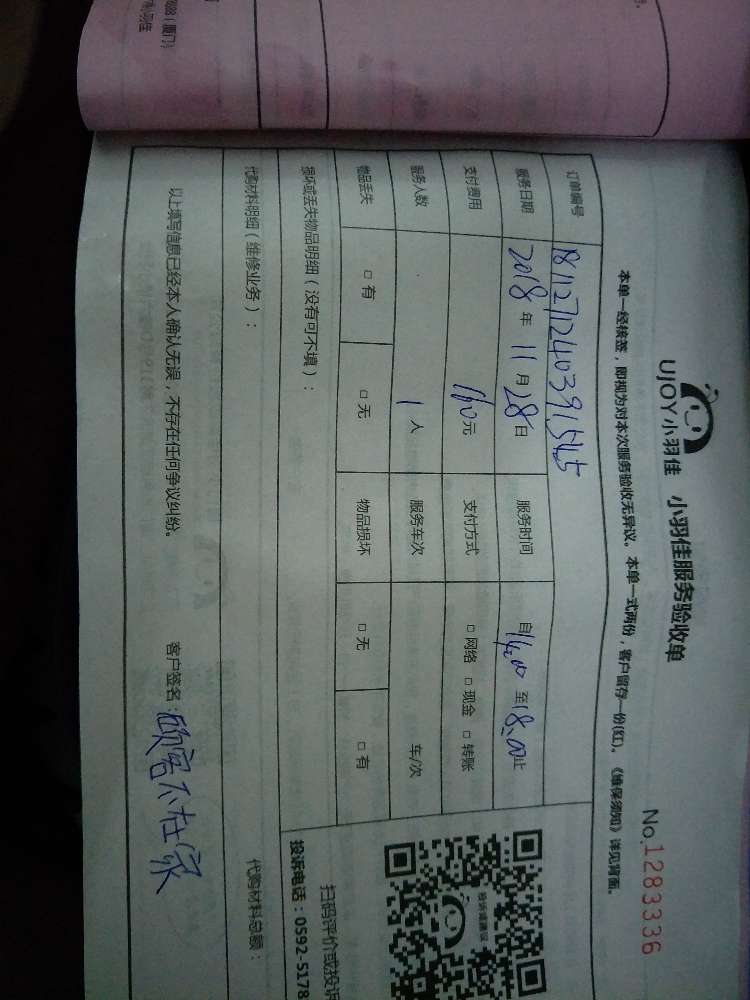 UJOY小羽佳 小羽佳服务验收单 No.1283336
本单一经核签，即视为对本次服务验收无异议。本单一式两份，客户留存一份(红)。《维保须知》详见背面。
订单编号 1811271240391545
服务日期 2018年11月28日 服务时间 自14:00至18:00止
支付费用 160元 支付方式 □网络 □现金 □转账
服务人数 1人 服务车次 车/次
物品丢失 □有 □无 物品损坏 □无 □有
损坏或丢失物品明细（没有可不填）：
代购材料明细（维修业务）： 代购材料总额：
以上填写信息已经本人确认无误，不存在任何争议纠纷。 客户签名：顾客不在家
投诉或建议
扫码评价或投诉
投诉电话：0592-5178